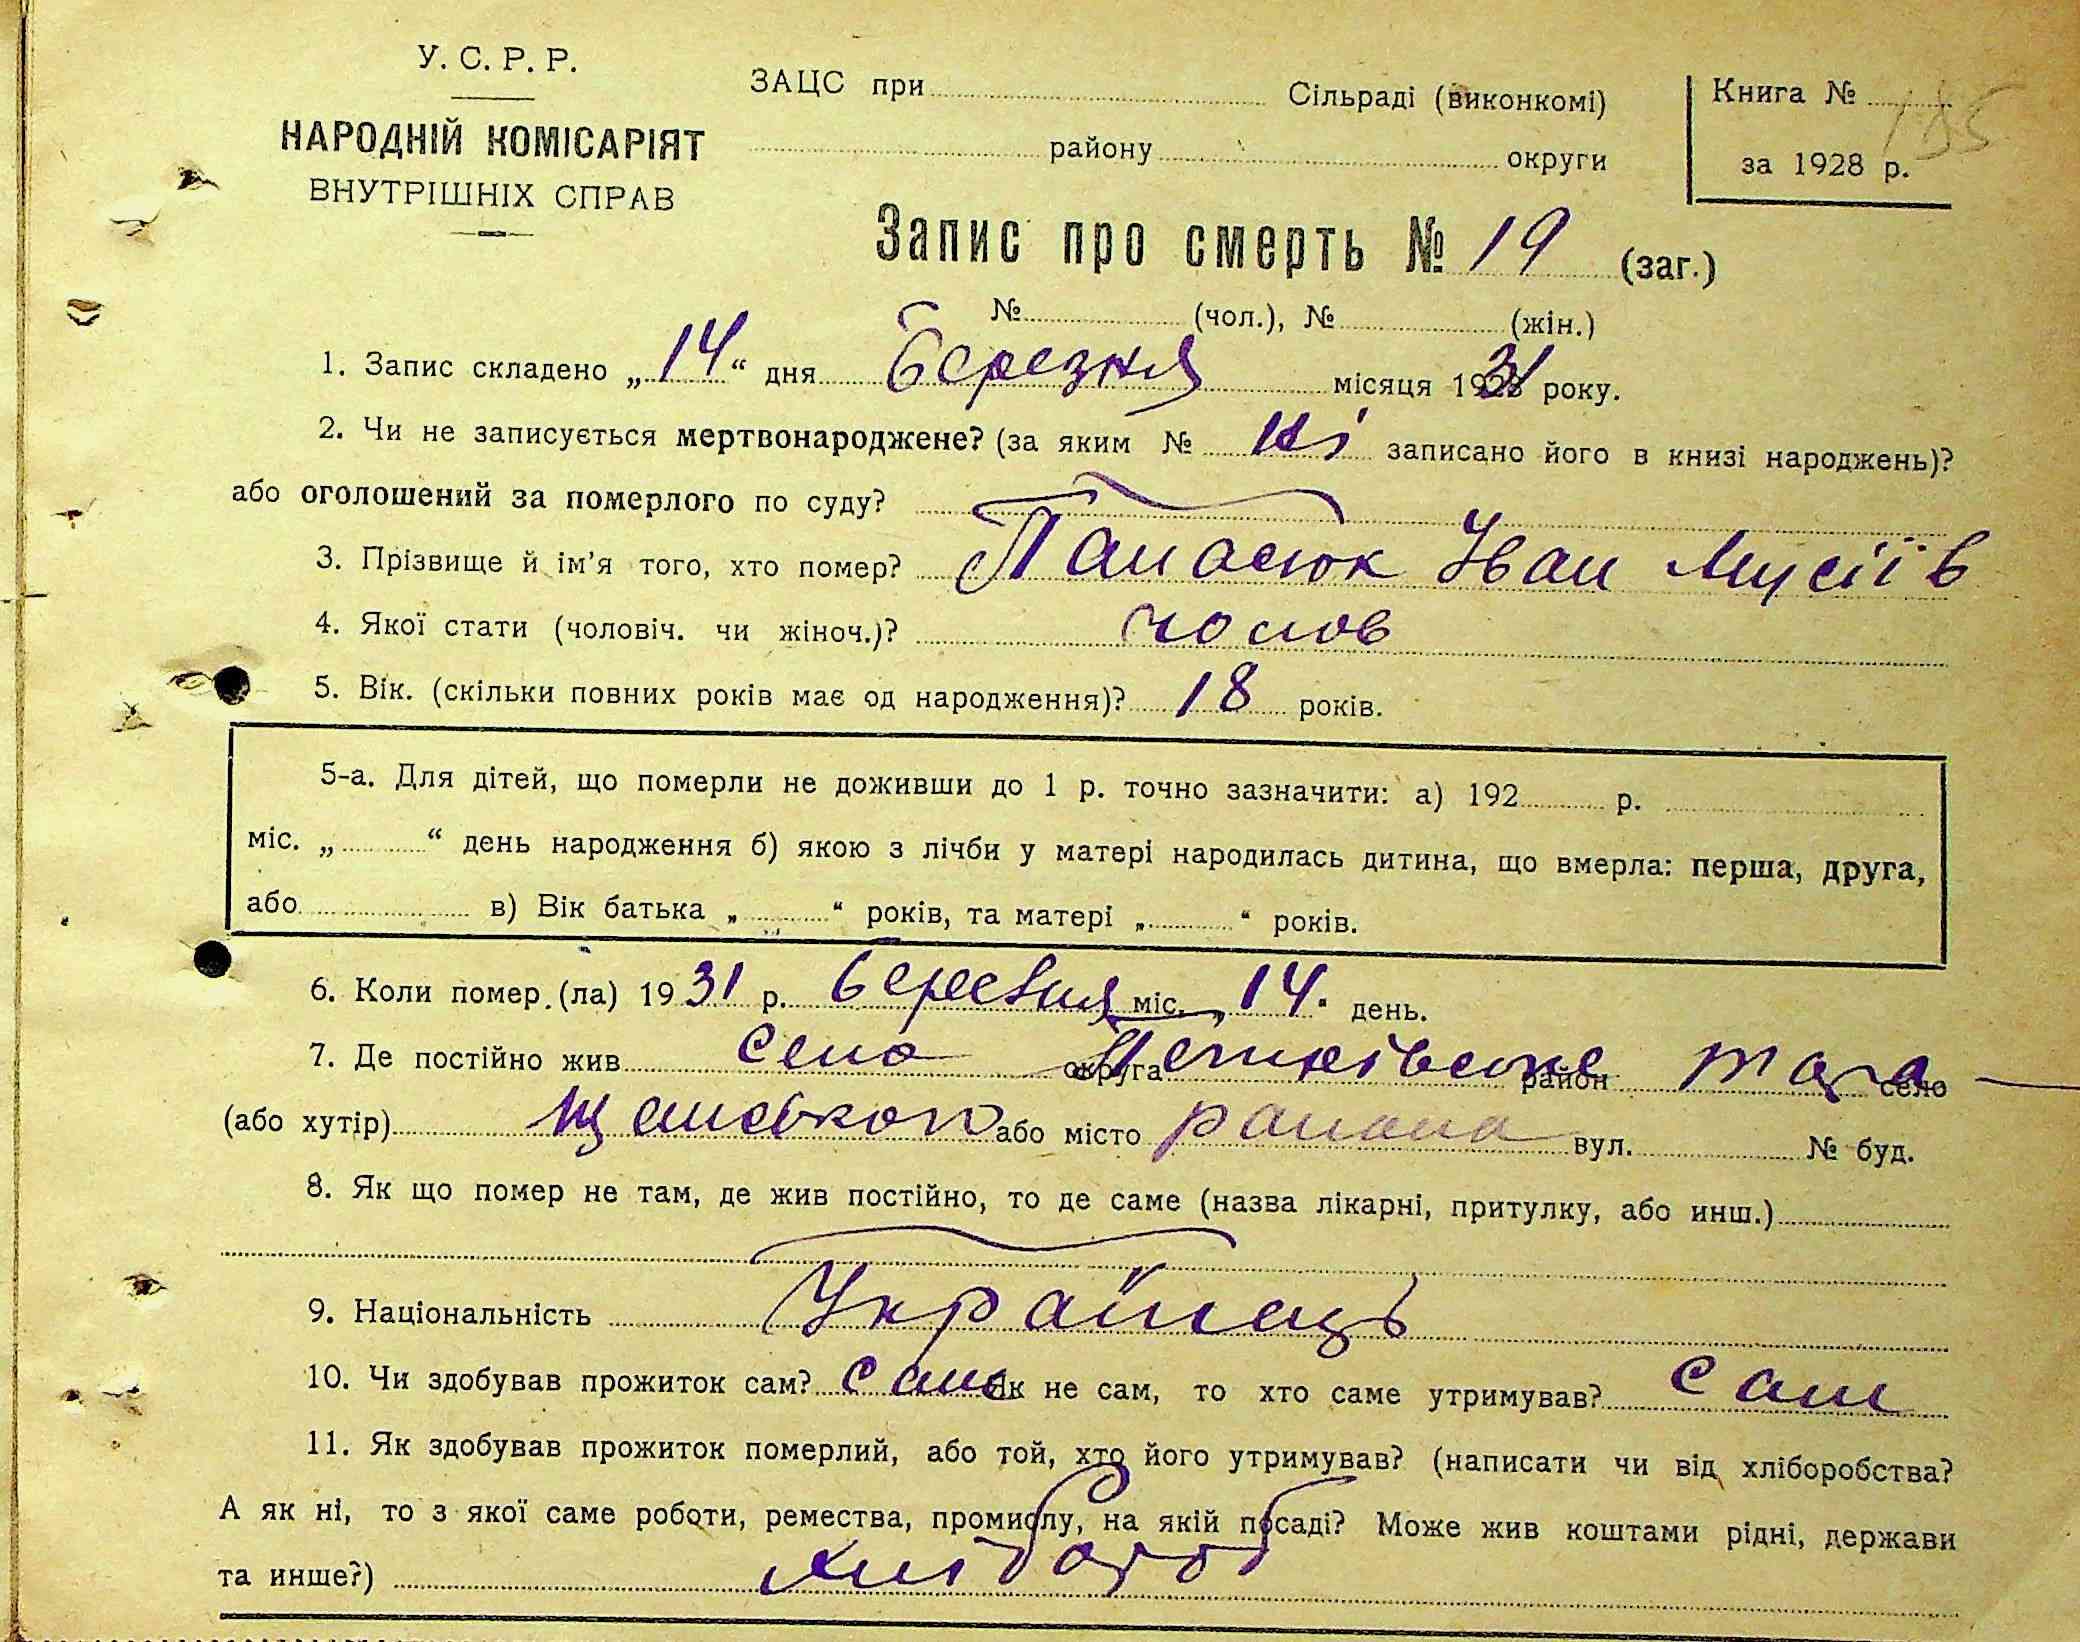 У. С. Р. Р.
НАРОДНІЙ КОМІСАРІЯТ
ВНУТРІШНІХ СПРАВ
ЗАЦС при Сільраді (виконкомі)
району округи
Книга № 185
за 1928 р.
Запис про смерть № 19 (заг.)
№ (чол.), № (жін.)
1. Запис складено „14“ дня Березня місяця 1931 року.
2. Чи не записується мертвонароджене? (за яким № ні записано його в книзі народжень)?
або оголошений за померлого по суду?
3. Прізвище й ім'я того, хто помер? Панасюк Іван Мусіїв
4. Якої стати (чоловіч. чи жіноч.)? чолов
5. Вік. (скільки повних років має од народження)? 18 років.
5-а. Для дітей, що померли не доживши до 1 р. точно зазначити: а) 192 р.
міс. „ “ день народження б) якою з лічби у матері народилась дитина, що вмерла: перша, друга,
або в) Вік батька „ “ років, та матері „ “ років.
6. Коли помер.(ла) 1931 р. березня міс. „14“ день.
7. Де постійно жив село округа район тара село
(або хутір) щанського або місто района вул. № буд.
8. Як що помер не там, де жив постійно, то де саме (назва лікарні, притулку, або инш.)
9. Національність Українець
10. Чи здобував прожиток сам? сам Як не сам, то хто саме утримував? сам
11. Як здобував прожиток померлий, або той, хто його утримував? (написати чи від хліборобства?
А як ні, то з якої саме роботи, ремества, промислу, на якій посаді? Може жив коштами рідні, держави
та инше?) хлібороб